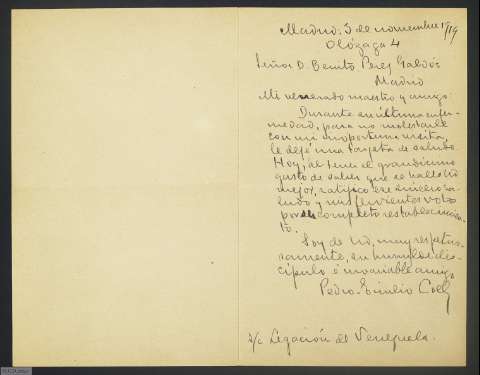 Madrid: 3 de noviembre 1919
Olózaga 4
Señor D. Benito Perez Galdós
Madrid
Mi venerado maestro y amigo:
Durante su última enfer-
medad, para no molestarle
con mi inoportuna visita,
le dejé una tarjeta de saludo.
Hoy, al tener el grandísimo
gusto de saber que se halla Ud
mejor, ratifico ese sincero sa-
ludo y mis fervientes votos
por su completo restablecimien-
to.
Soy de Ud, muy respetuo-
samente, su humilde dis-
cípulo é invariable amigo
Pedro-Emilio Coll
s/c Legación de Venezuela.